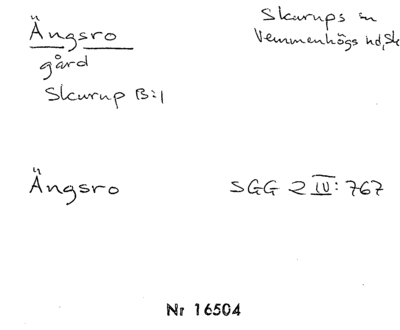 Ängsro
gård
Skurup B:1
Skurups sn
Vemmenhögs hd, Sk
Ängsro
SGG 2 IV: 767
Nr 16504